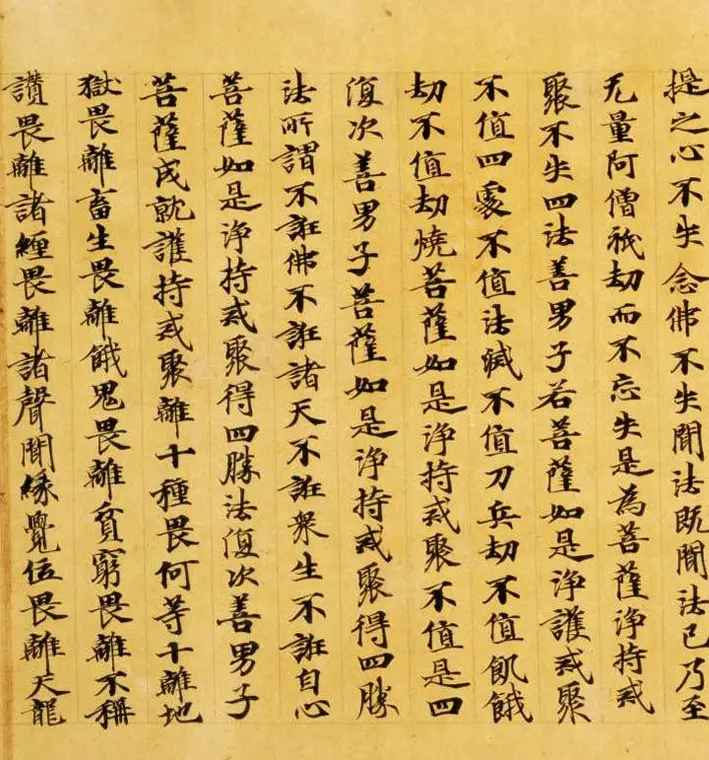 提之心不失念佛不失聞法既聞法已乃至
无量阿僧祇劫而不忘失是為菩薩淨持戒
聚不失四法善男子若菩薩如是淨護戒聚
不值四處不值法滅不值刀兵劫不值飢餓
劫不值劫燒菩薩如是淨持戒聚不值是四
復次善男子菩薩如是淨持戒聚得四勝
法所謂不誑佛不誑諸天不誑衆生不誑自心
菩薩如是淨持戒聚得四勝法復次善男子
菩薩成就護持戒聚離十種畏何等十離地
獄畏離畜生畏離餓鬼畏離貧窮畏離不稱
讚畏離諸纏畏離諸聲聞緣覺位畏離天龍